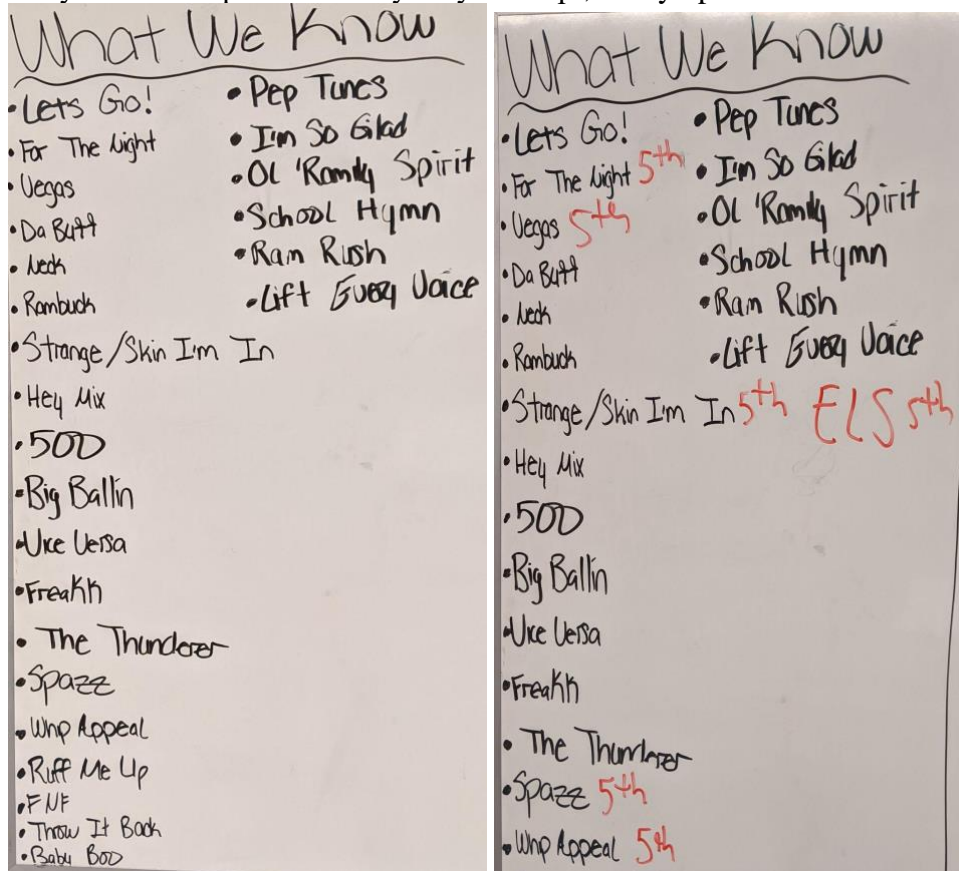 What We Know
• Lets Go!
• For The Night
• Vegas
• Da Butt
• Neck
• Rambuck
• Strange/Skin I'm In
• Hey Mix
• 500
• Big Ballin
• Vice Versa
• Freakk
• The Thunderer
• Spazz
• Whp Appeal
• Ruff Me Up
• FNF
• Throw It Back
• Baby BOO
• Pep Tunes
• I'm So Glad
• OL 'Ramily Spirit
• School Hymn
• Ram Rush
• Lift Every Voice
What We Know
• Lets Go!
• For The Night 5th
• Vegas 5th
• Da Butt
• Neck
• Rambuck
• Strange/Skin I'm In 5th ELS 5th
• Hey Mix
• 500
• Big Ballin
• Vice Versa
• Freakk
• The Thunderer
• Spazz 5th
• Whp Appeal 5th
• Pep Tunes
• I'm So Glad
• OL 'Ramily Spirit
• School Hymn
• Ram Rush
• Lift Every Voice